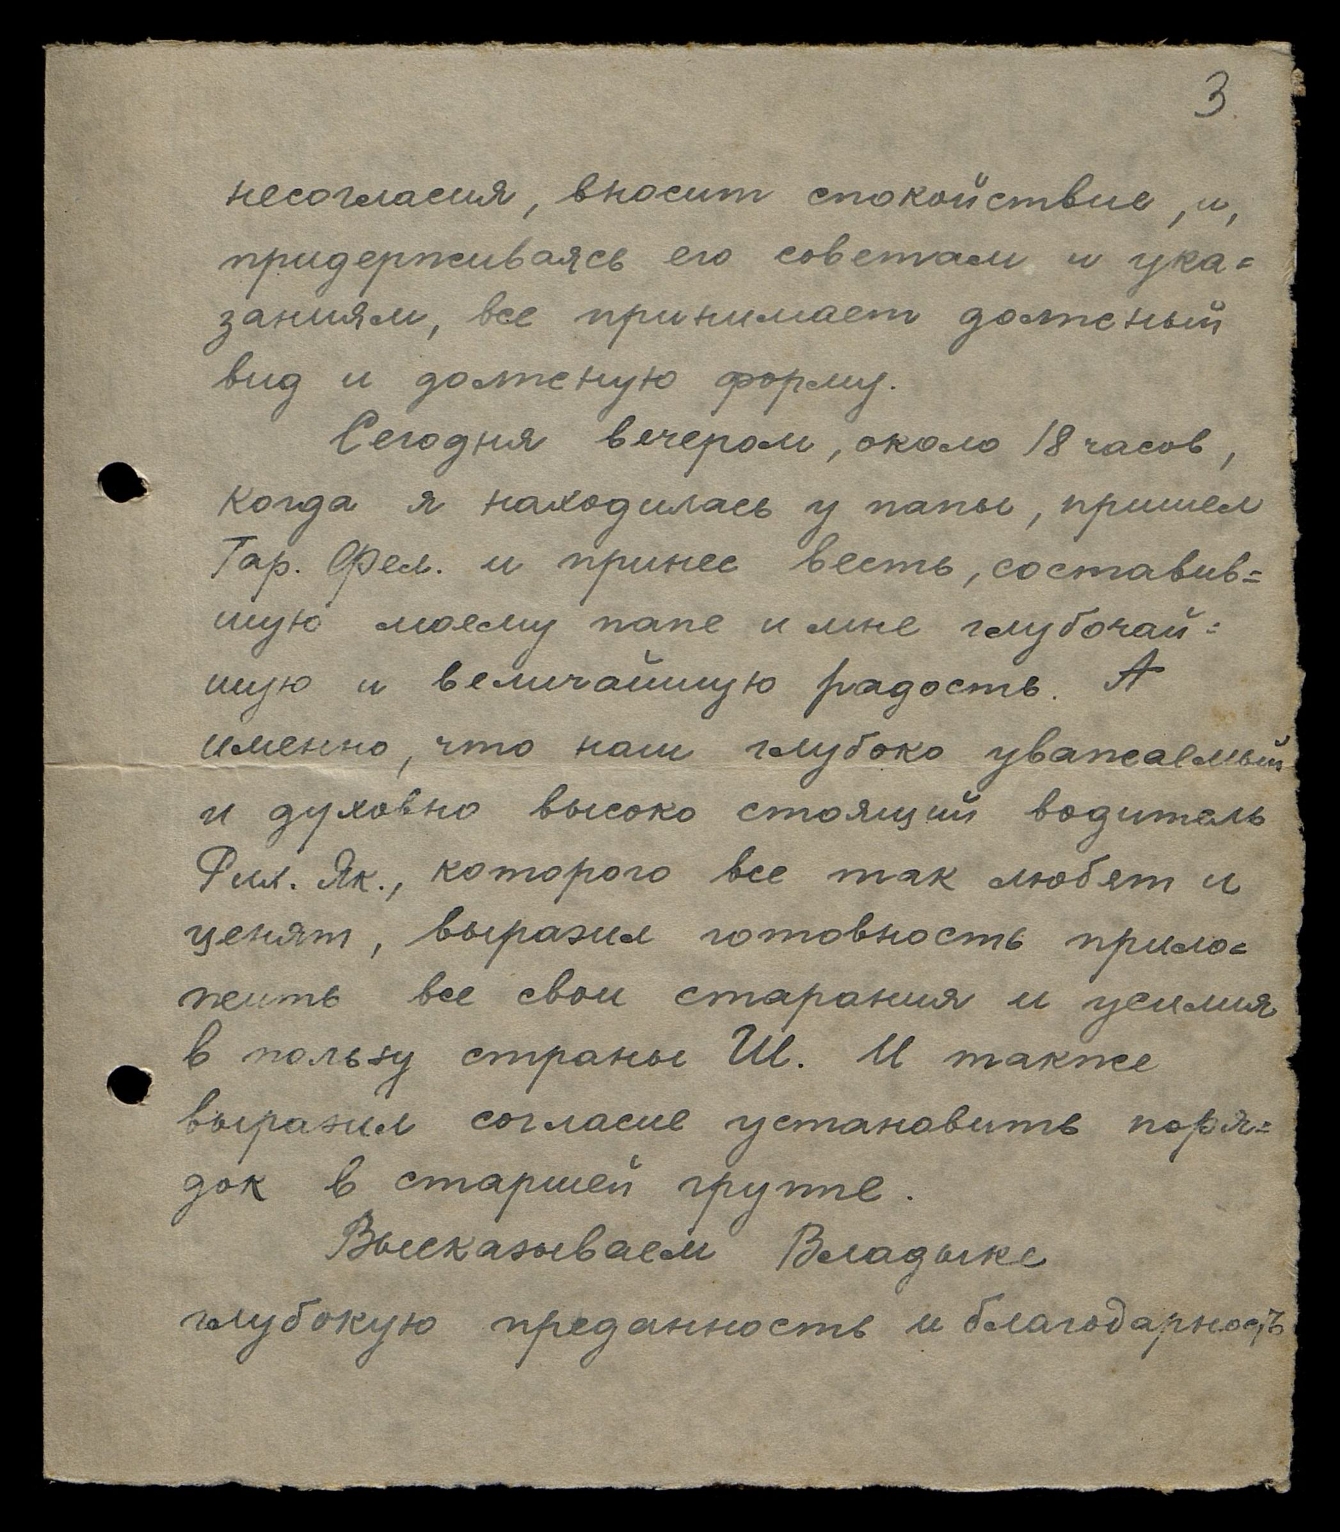 3.
несогласия, вносит спокойствие, и,
придерживаясь его советам и ука=
заниям, все принимает должный
вид и должную форму.
Сегодня вечером, около 18 часов,
когда я находилась у папы, пришел
Гар. Фел. и принес весть, составив=
шую моему папе и мне глубочай=
шую и величайшую радость. А
именно, что наш глубоко уважаемый
и духовно высоко стоящий водитель
Фил. Як., которого все так любят и
ценят, выразил готовность прило=
жить все свои старания и усилия
в пользу страны Ш. И также
выразил согласие установить поря=
док в старшей группе.
Высказываем Владыке
глубокую преданность и благодарность